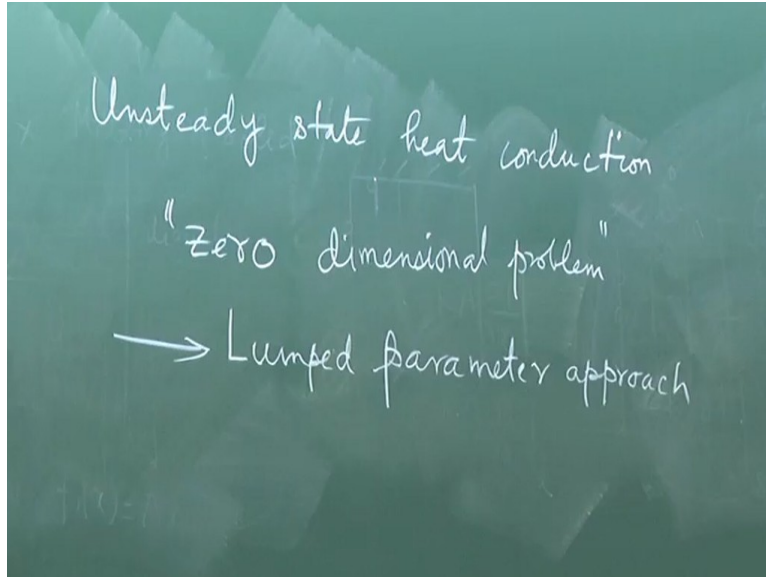 Unsteady state heat conduction
"Zero dimensional problem"
→ Lumped parameter approach